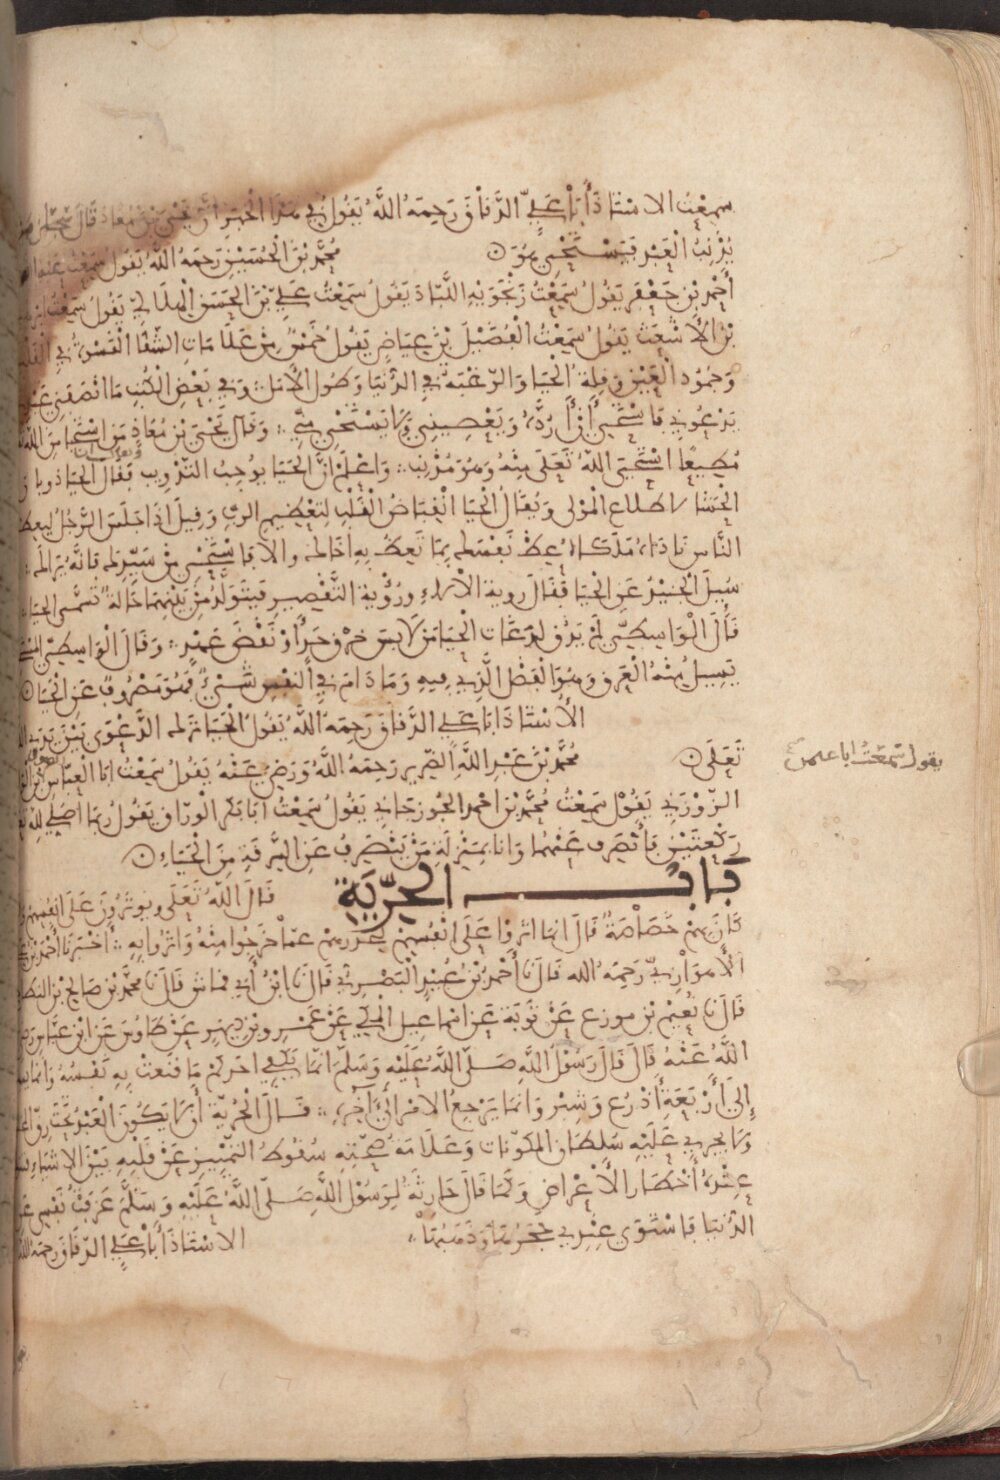 سمعت الاستاذ أبا علي الدقاق رحمه الله يقول في هذا الخبر ان يحيى بن معاذ قال سبحان من
يذنب العبد فيستحيي هو
محمد بن الحسين رحمه الله يقول سمعت عبد الله
أحمد بن جعفر يقول سمعت زنجويه اللباد يقول سمعت علي بن الحسن الهلالي يقول سمعت ابراهيم
بن الأشعث يقول سمعت الفضيل بن عياض يقول خمس من علامات الشقا القسوة في القلب
وجمود العين وقلة الحيا والرغبة في الدنيا وطول الأمل وفي بعض الكتب ما انصفني عبدي
يدعوني فاستحيي أن أرده ويعصيني ولا يستحي مني وقال يحيى بن معاذ من استحيا من الله
مطيعا استحيى الله تعلى منه وهو مذنب واعلم ان الحيا يوجب التذويب فقال الحيا ذوبان
الحشا لاطلاع المولى ويقال الحيا انقباض القلب لتعظيم الرب وقيل اذا جلس الرجل ليعظ
الناس ناداه ملكاه عظ نفسك بما تعظ به اخاك والا فاستحي من سيدك فانه يراك
سيل الجنيد عن الحيا فقال روية الآلاء ورؤية التقصير فيتولد من بينهما حالة تسمى الحيا
قال الواسطي لم يذق لذعات الحيا من لابس خرق حد أو نقض عهد وقال الواسطي المستحي
يسيل منه العرق وهو الفضل الذي فيه وما دام في النفس شيء فهو مصروف عن الحيا
الأستاذ ابا علي الدقاق رحمه الله يقول الحيا ترك الدعوى بين يدي الله
تعلى
محمد بن عبد الله الضرير رحمه الله ورضي عنه يقول سمعت ابا العباس بن الوليد
الزوزني يقول سمعت محمد بن احمد الجوزجاني يقول سمعت ابا بكر الوراق يقول ربما اصلي لله تعلى
ركعتين فأنصرف عنهما وانا بمنزلة من ينصرف عن السرقة من الحياء
يقول سمعت ابا علي
باب الحرية
قال الله تعلى ويوثرون على انفسهم ولو
كان بهم خصاصة قال انما اثروا على انفسهم لتجردهم عما خرجوا منه واثروا به أخبرنا أحمد بن
الأهوازي رحمه الله قال نا أحمد بن عبيد البصري قال نا ابن أبي قماش قال نا محمد بن صالح بن النطاح
قال نا نعيم بن مورع بن توبة عن اسماعيل المكي عن عمرو بن دينر عن طاوس عن ابن عباس رضي
الله عنه قال قال رسول الله صلى الله عليه وسلم انما يكفي احدكم ما قنعت به نفسه وانما يصير
إلى أربعة أذرع وشبر وانما يرجع الامر الى آخره قال الحرية أن لا يكون العبد تحت رق المخلوقات
ولا يجري عليه سلطان المكونات وعلامة صحته سقوط التمييز عن قلبه بين الاشياء
عنده أخطار الأعراض ولما قال حارثة لرسول الله صلى الله عليه وسلم عرفت نفسي عن
الدنيا فاستوى عندي حجرها وذهبها
الاستاذ أبا علي الدقاق رحمه الله